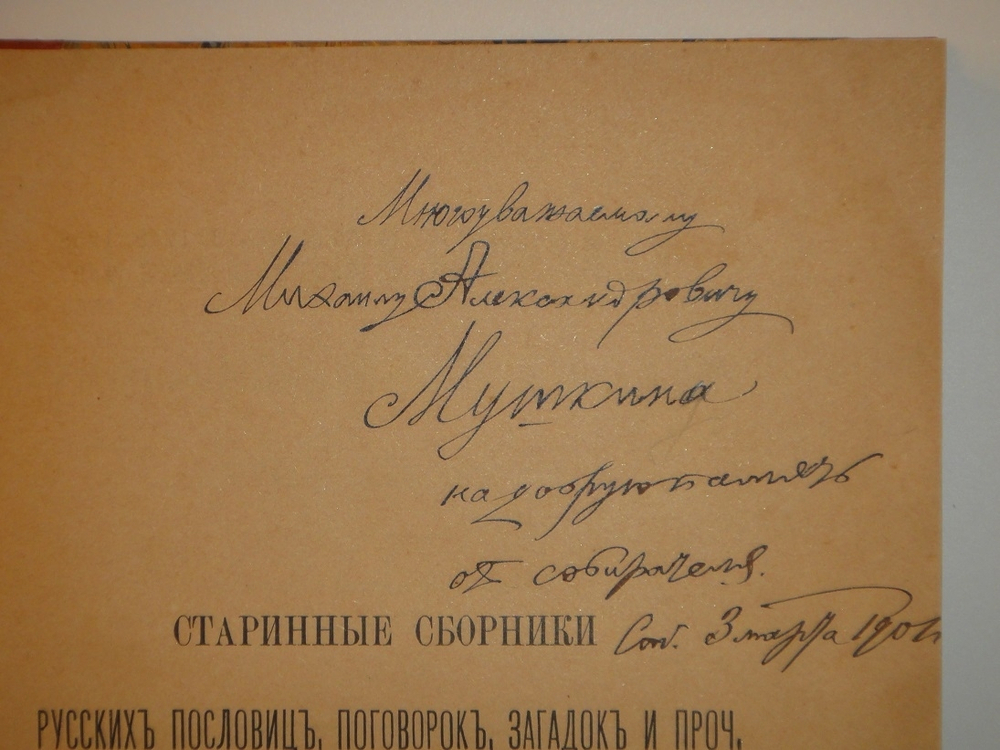 Многоуважаемому
Михаилу Александровичу
Мушкина
на добрую память
от собирателя.
СТАРИННЫЕ СБОРНИКИ Спб. 3 марта 1901
РУССКИХЪ ПОСЛОВИЦЪ, ПОГОВОРОКЪ, ЗАГАДОКЪ И ПРОЧ.